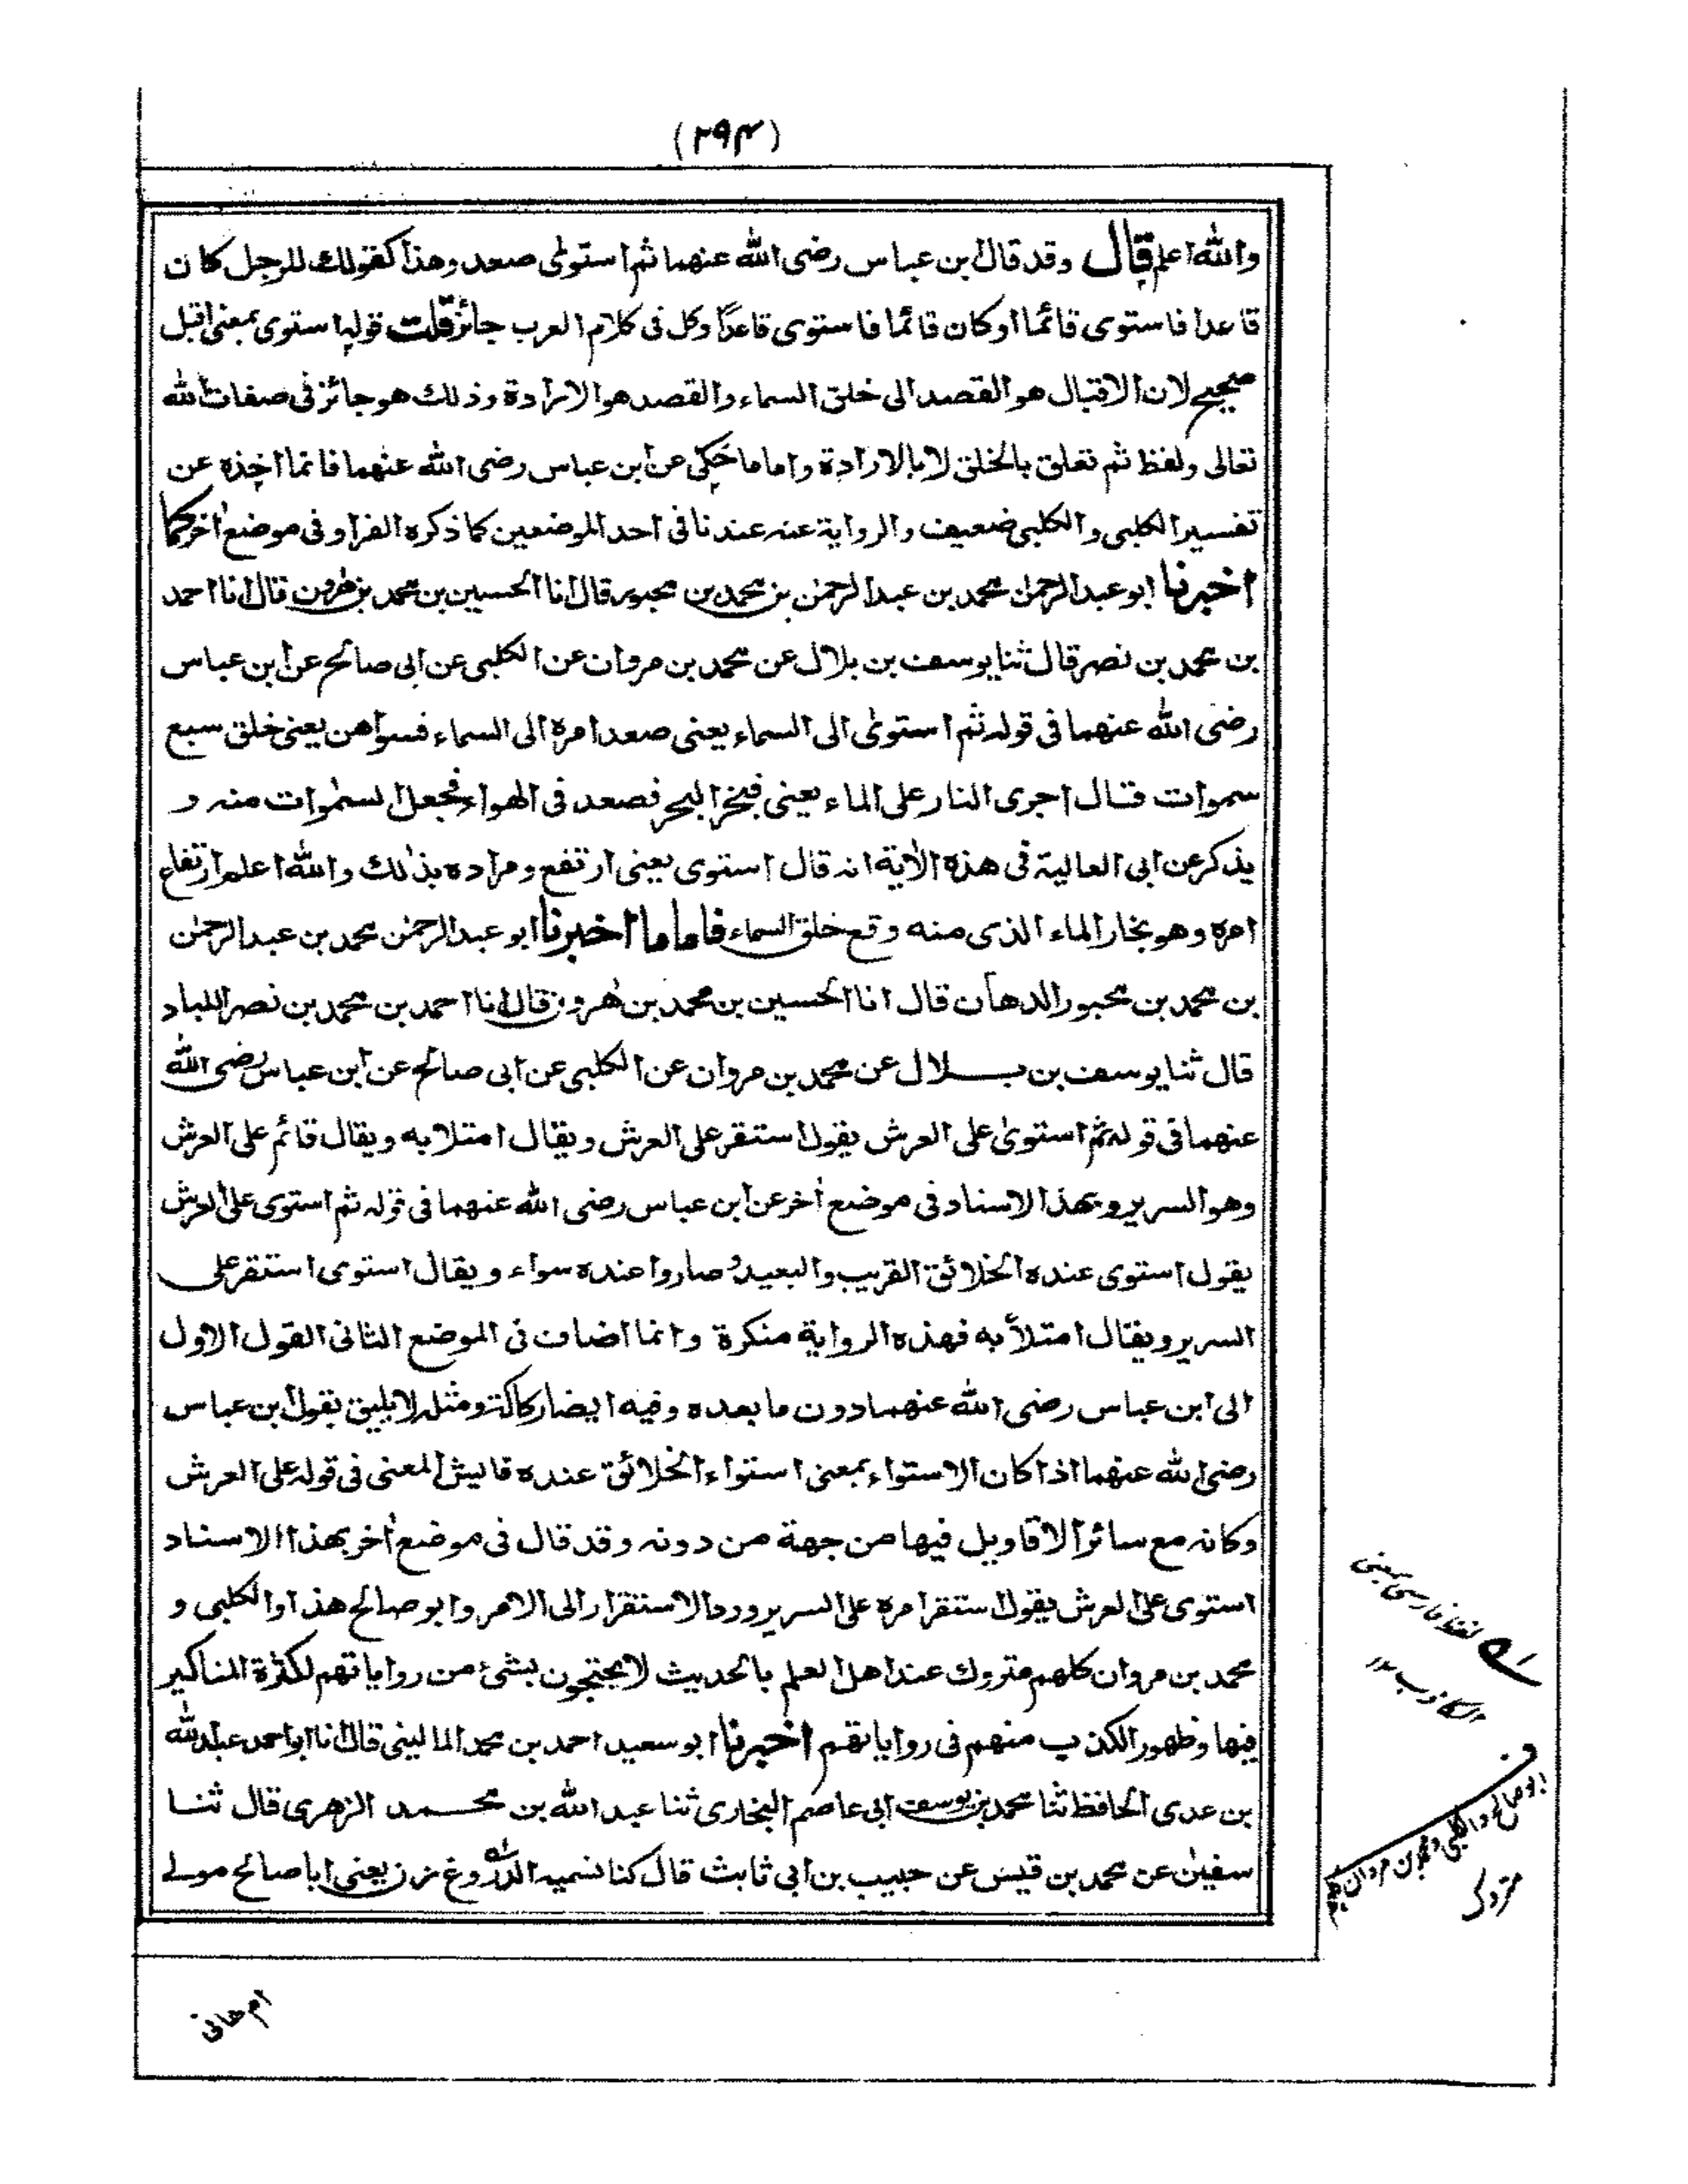 (۲۹۴)
والله اعلم قال وقد قال ابن عباس رضى الله عنهما ثم استوى صعد وهذا كقولك للرجل كان
قاعدا فاستوى قائما او كان قائما فاستوى قاعدا وكل فى كلام العرب جائز قلت قوله استوى بمعنى اقبل
صحيح لان الاقبال هو القصد الى خلق السماء والقصد هو الارادة وذلك هو جائز فى صفات الله
تعالى ولفظ ثم تعلق بالخلق لا بالارادة واما ما حكى عن ابن عباس رضى الله عنهما فانما اخذه عن
تفسير الكلبى والكلبى ضعيف والرواية عنه عندنا فى احد الموضعين كما ذكره الفراء وفى موضع اخر كما
اخبرنا ابو عبد الرحمن محمد بن عبد الرحمن بن محمد بن محبور قال انا الحسين بن محمد بن هرون قال انا احمد
بن محمد بن نصر قال ثنا يوسف بن بلال عن محمد بن مروان عن الكلبى عن ابى صالح عن ابن عباس
رضى الله عنهما فى قوله ثم استوى الى السماء يعنى صعد امره الى السماء فسواهن يعنى خلق سبع
سموات قال اجرى النار على الماء يعنى فبخر البحر فصعد فى الهواء فجعل السموات منه و
يذكر عن ابى العالية فى هذه الاية انه قال استوى يعنى ارتفع ومراده بذلك والله اعلم ارتفاع
امره وهو بخار الماء الذى منه وقع خلق السماء فاما ما اخبرنا ابو عبد الرحمن محمد بن عبد الرحمن
بن محمد بن محبور الدهان قال انا الحسين بن محمد بن هرون قال انا احمد بن محمد بن نصر اللباد
قال ثنا يوسف بن بلال عن محمد بن مروان عن الكلبى عن ابى صالح عن ابن عباس رضى الله
عنهما فى قوله ثم استوى على العرش يقول استقر على العرش ويقال امتلا به ويقال قائم على العرش
وهو السرير وبهذا الاسناد فى موضع اخر عن ابن عباس رضى الله عنهما فى قوله ثم استوى على العرش
يقول استوى عنده الخلائق القريب والبعيد وصاروا عنده سواء ويقال استوى استقر على
السرير ويقال امتلأ به فهذه الرواية منكرة وانما اضاف فى الموضع الثانى القول الاول
الى ابن عباس رضى الله عنهما دون ما بعده وفيه ايضا ركاكة ومثله لا يليق بقول ابن عباس
رضى الله عنهما اذا كان الاستواء بمعنى استواء الخلائق عنده فايش المعنى فى قوله على العرش
وكانه مع سائر الاقاويل فيها من جهة من دونه وقد قال فى موضع اخر بهذا الاسناد
استوى على العرش يقول استقر امره على السرير ورد الاستقرار الى الامر وابو صالح هذا والكلبى و
محمد بن مروان كلهم متروك عند اهل العلم بالحديث لا يحتجون بشئ من رواياتهم لكثرة المناكير
فيها وظهور الكذب منهم فى رواياتهم اخبرنا ابو سعيد احمد بن محمد المالينى قال انا ابو احمد عبد الله
بن عدى الحافظ ثنا محمد بن يوسف ابى عاصم البخارى ثنا عبد الله بن محمد الزهرى قال ثنا
سفين عن محمد بن قيس عن حبيب بن ابى ثابت قال كنا نسميه الدروغ زن يعنى ابا صالح مولے
له لفظ فارسى بمعنى
الكاذب ۱۲
ف
ابو صالح والكلبى ومحمد بن مروان كلهم
متروك
ام هانى